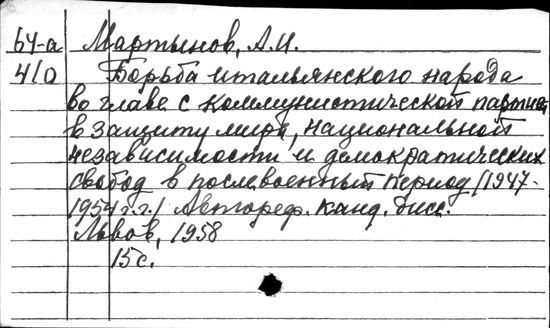 64-а Мартынов, А.И.
410 Борьба итальянского народа
во главе с коммунистической партией
в защиту мира, национальной
независимости и демократических
свобод в послевоенный период /1947-
1954 г.г./ Автореф. канд. дисс.
Львов, 1958
15 с.